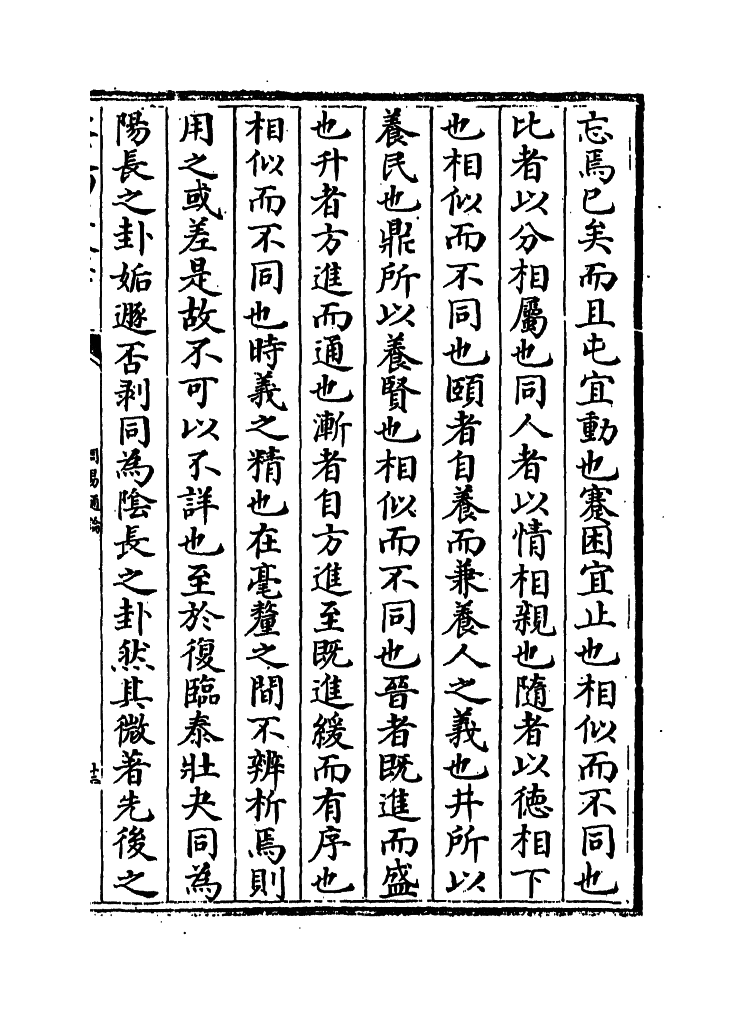 忘焉已矣而且屯宜動也蹇困宜止也相似而不同也
比者以分相屬也同人者以情相親也隨者以徳相下
也相似而不同也頤者自養而兼養人之義也井所以
養民也鼎所以養賢也相似而不同也晉者既進而盛
也升者方進而通也漸者自方進至既進緩而有序也
相似而不同也時義之精也在毫釐之間不辨析焉則
用之或差是故不可以不詳也至於復臨泰壯夬同為
陽長之卦姤遯否剥同為陰長之卦然其微著先後之
周易通論